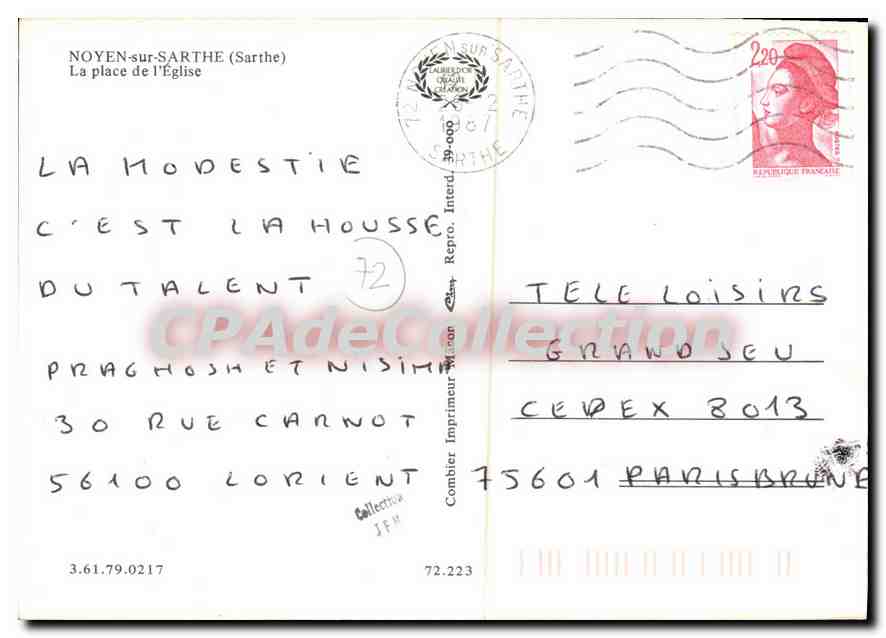 NOYEN-sur-SARTHE (Sarthe)
La place de l'Église
LAURIER D'OR
QUALITÉ
CRÉATION
72 NOYEN SUR SARTHE
1987
SARTHE
2,20
POSTES
RÉPUBLIQUE FRANÇAISE
LA MODESTIE
C'EST LA HOUSSE
DU TALENT
72
PRAGHOSH ET NISIMA
30 RUE CARNOT
56100 LORIENT
TELE LOISIRS
GRAND JEU
CEDEX 8013
75601 PARIS BRUNE
Combier Imprimeur Macon Cim Repro. Interd. 39-000
CPAdeCollection
Collection
J F M
3.61.79.0217
72.223